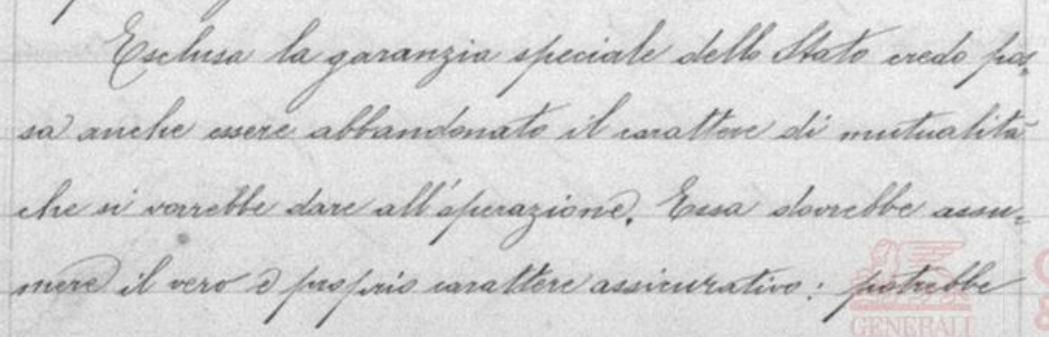 Esclusa la garanzia speciale dello Stato credo pos,
sa anche essere abbandonato il carattere di mutualità
che si vorrebbe dare all'operazione. Essa dovrebbe assu=
mere il vero e proprio carattere assicurativo: potrebbe
GENERALI